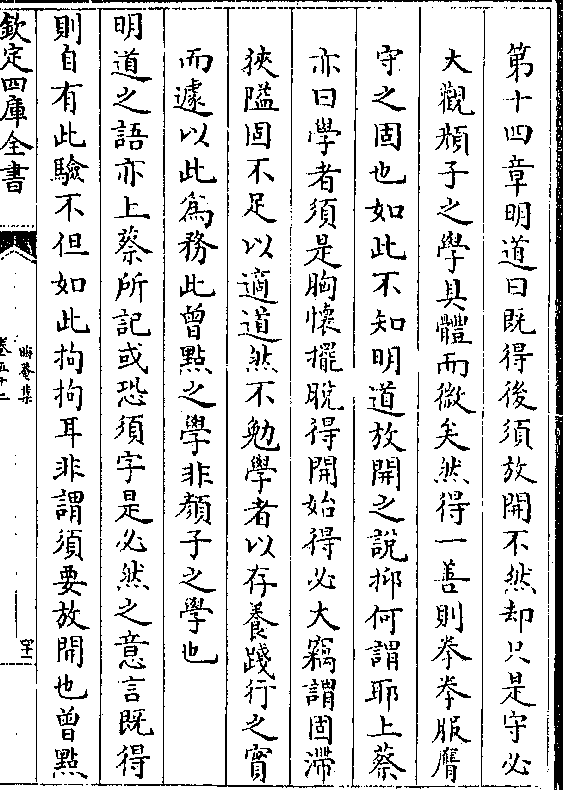 第十四章明道曰既得後須放開不然却只是守必
大觀顔子之學具體而微矣然得一善則拳拳服膺
守之固也如此不知明道放開之說抑何謂耶上蔡
亦曰學者須是胸懷擺脫得開始得必大竊謂固滯
狹隘固不足以適道然不勉學者以存養踐行之實
而遽以此爲務此曾點之學非顔子之學也
明道之語亦上蔡所記或恐須字是必然之意言既得
則自有此驗不但如此拘拘耳非謂須要放開也曾點
欽定四庫全書
晦菴集
卷五十二